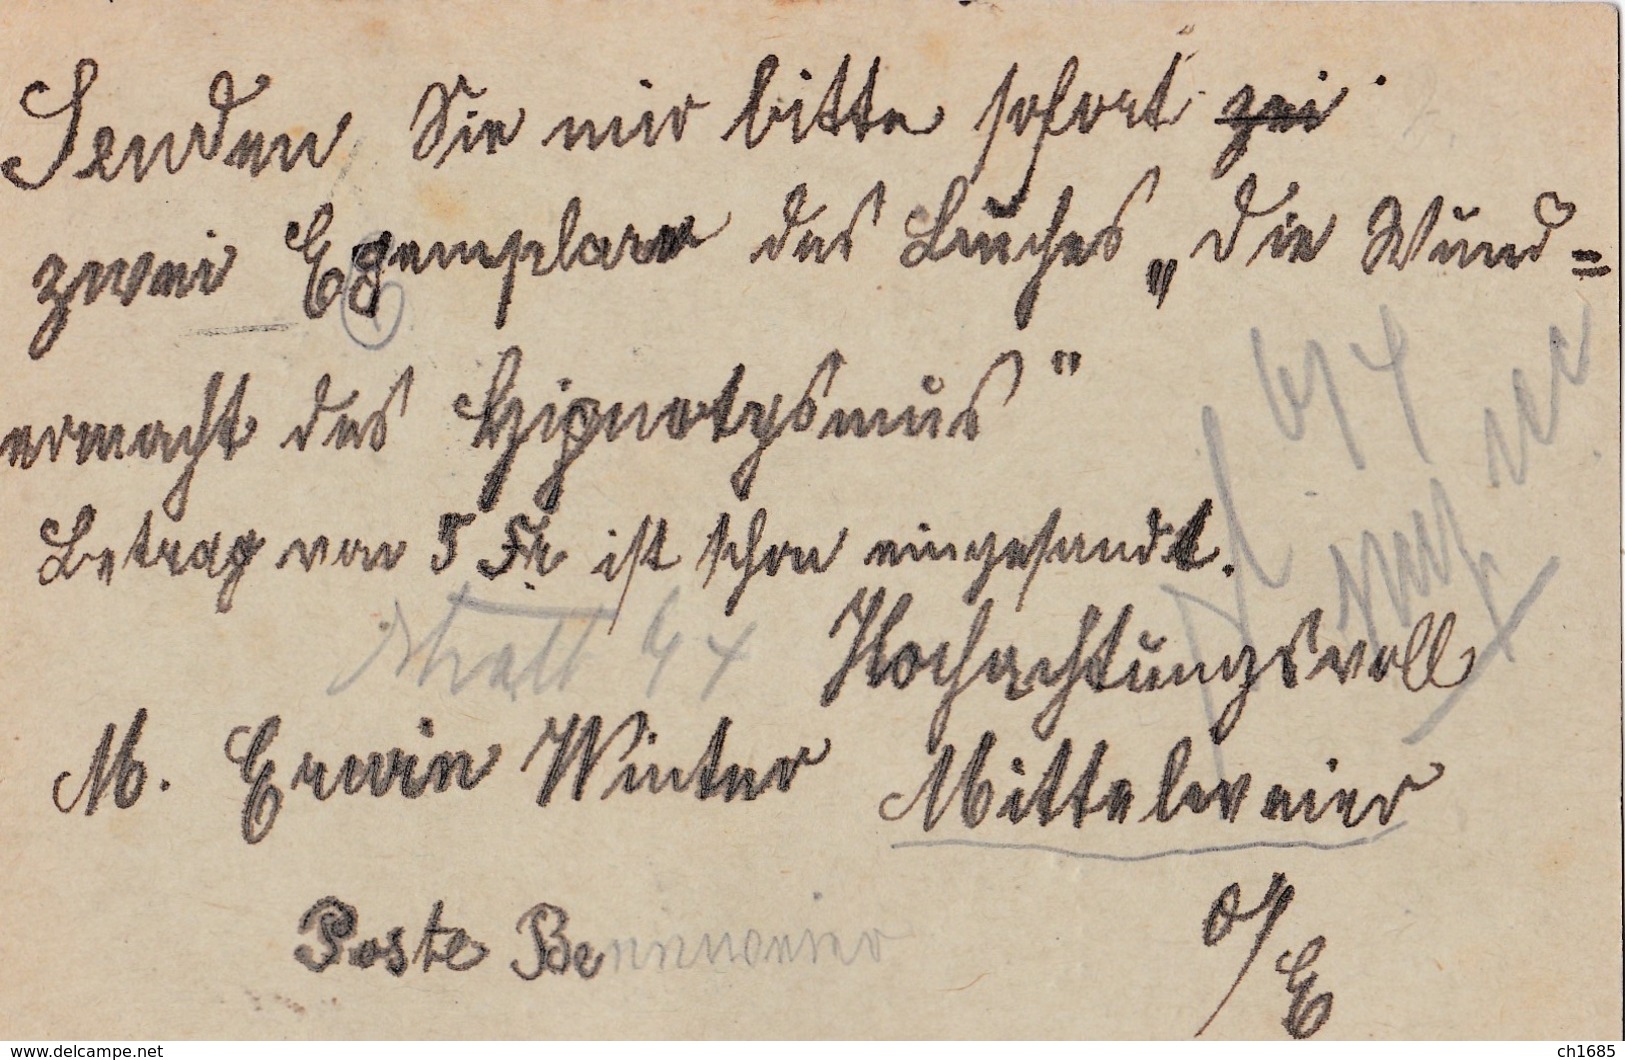 Senden Sie mir bitte sofort zei
zwei Egemplare des Buches „Die Wund=
ermacht des Hipnotysmus"
Betrag von 5 Fr ist schon eingesandt.
Hochachtungsvoll
M. Erwin Winter Mittelweier
Poste Bennweier
O/E
delcampe.net
ch1685